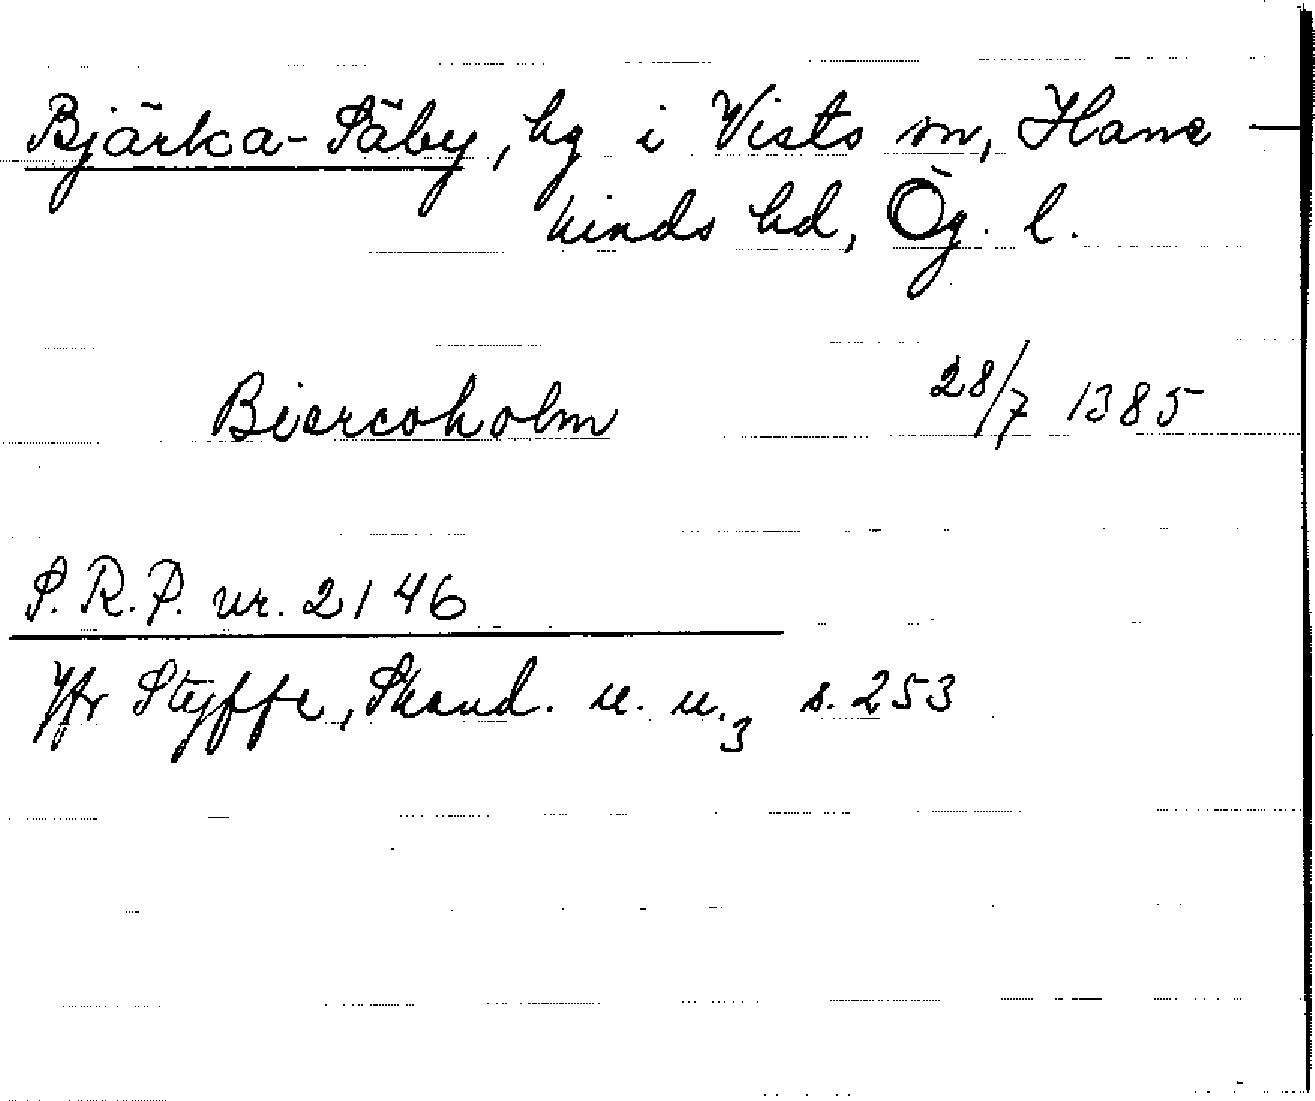 Bjärka-Säby, hg i Vists sn, Hane-
kinds hd, Ög. l.
Biercoholm 28/7 1385
S.R.P. nr. 2146
Jfr Styffe, Skand. u. u.3 s. 253